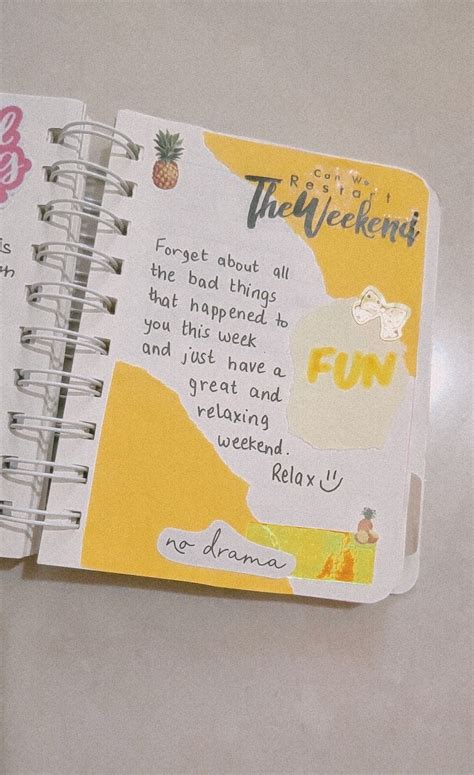 Can We
Restart
The Weekend
Forget about all
the bad things
that happened to
you this week
and just have a
great and
relaxing
weekend.
Relax
FUN
no drama